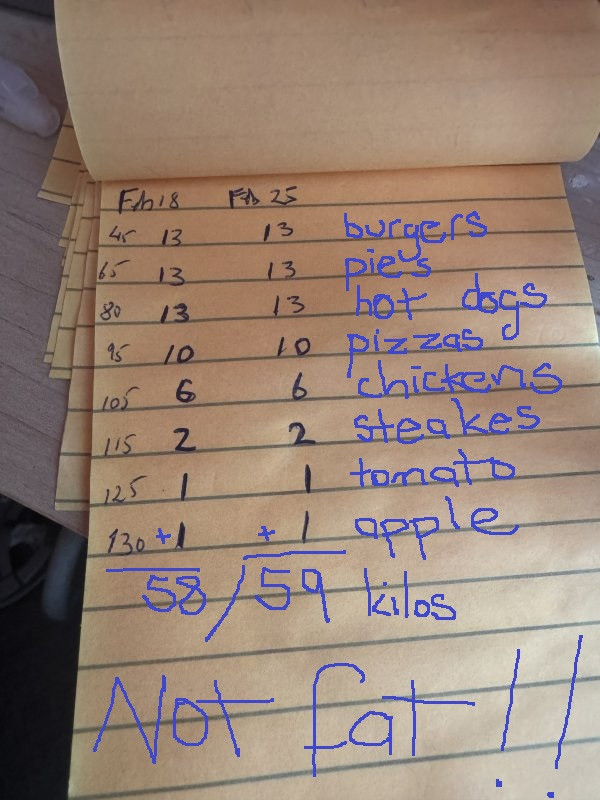 Feb 18 Feb 25
45 13 13 burgers
65 13 13 pies
80 13 13 hot dogs
95 10 10 pizzas
105 6 6 chickens
115 2 2 steakes
125 1 1 tomato
130 +1 +1 apple
58/59 kilos
Not fat!!